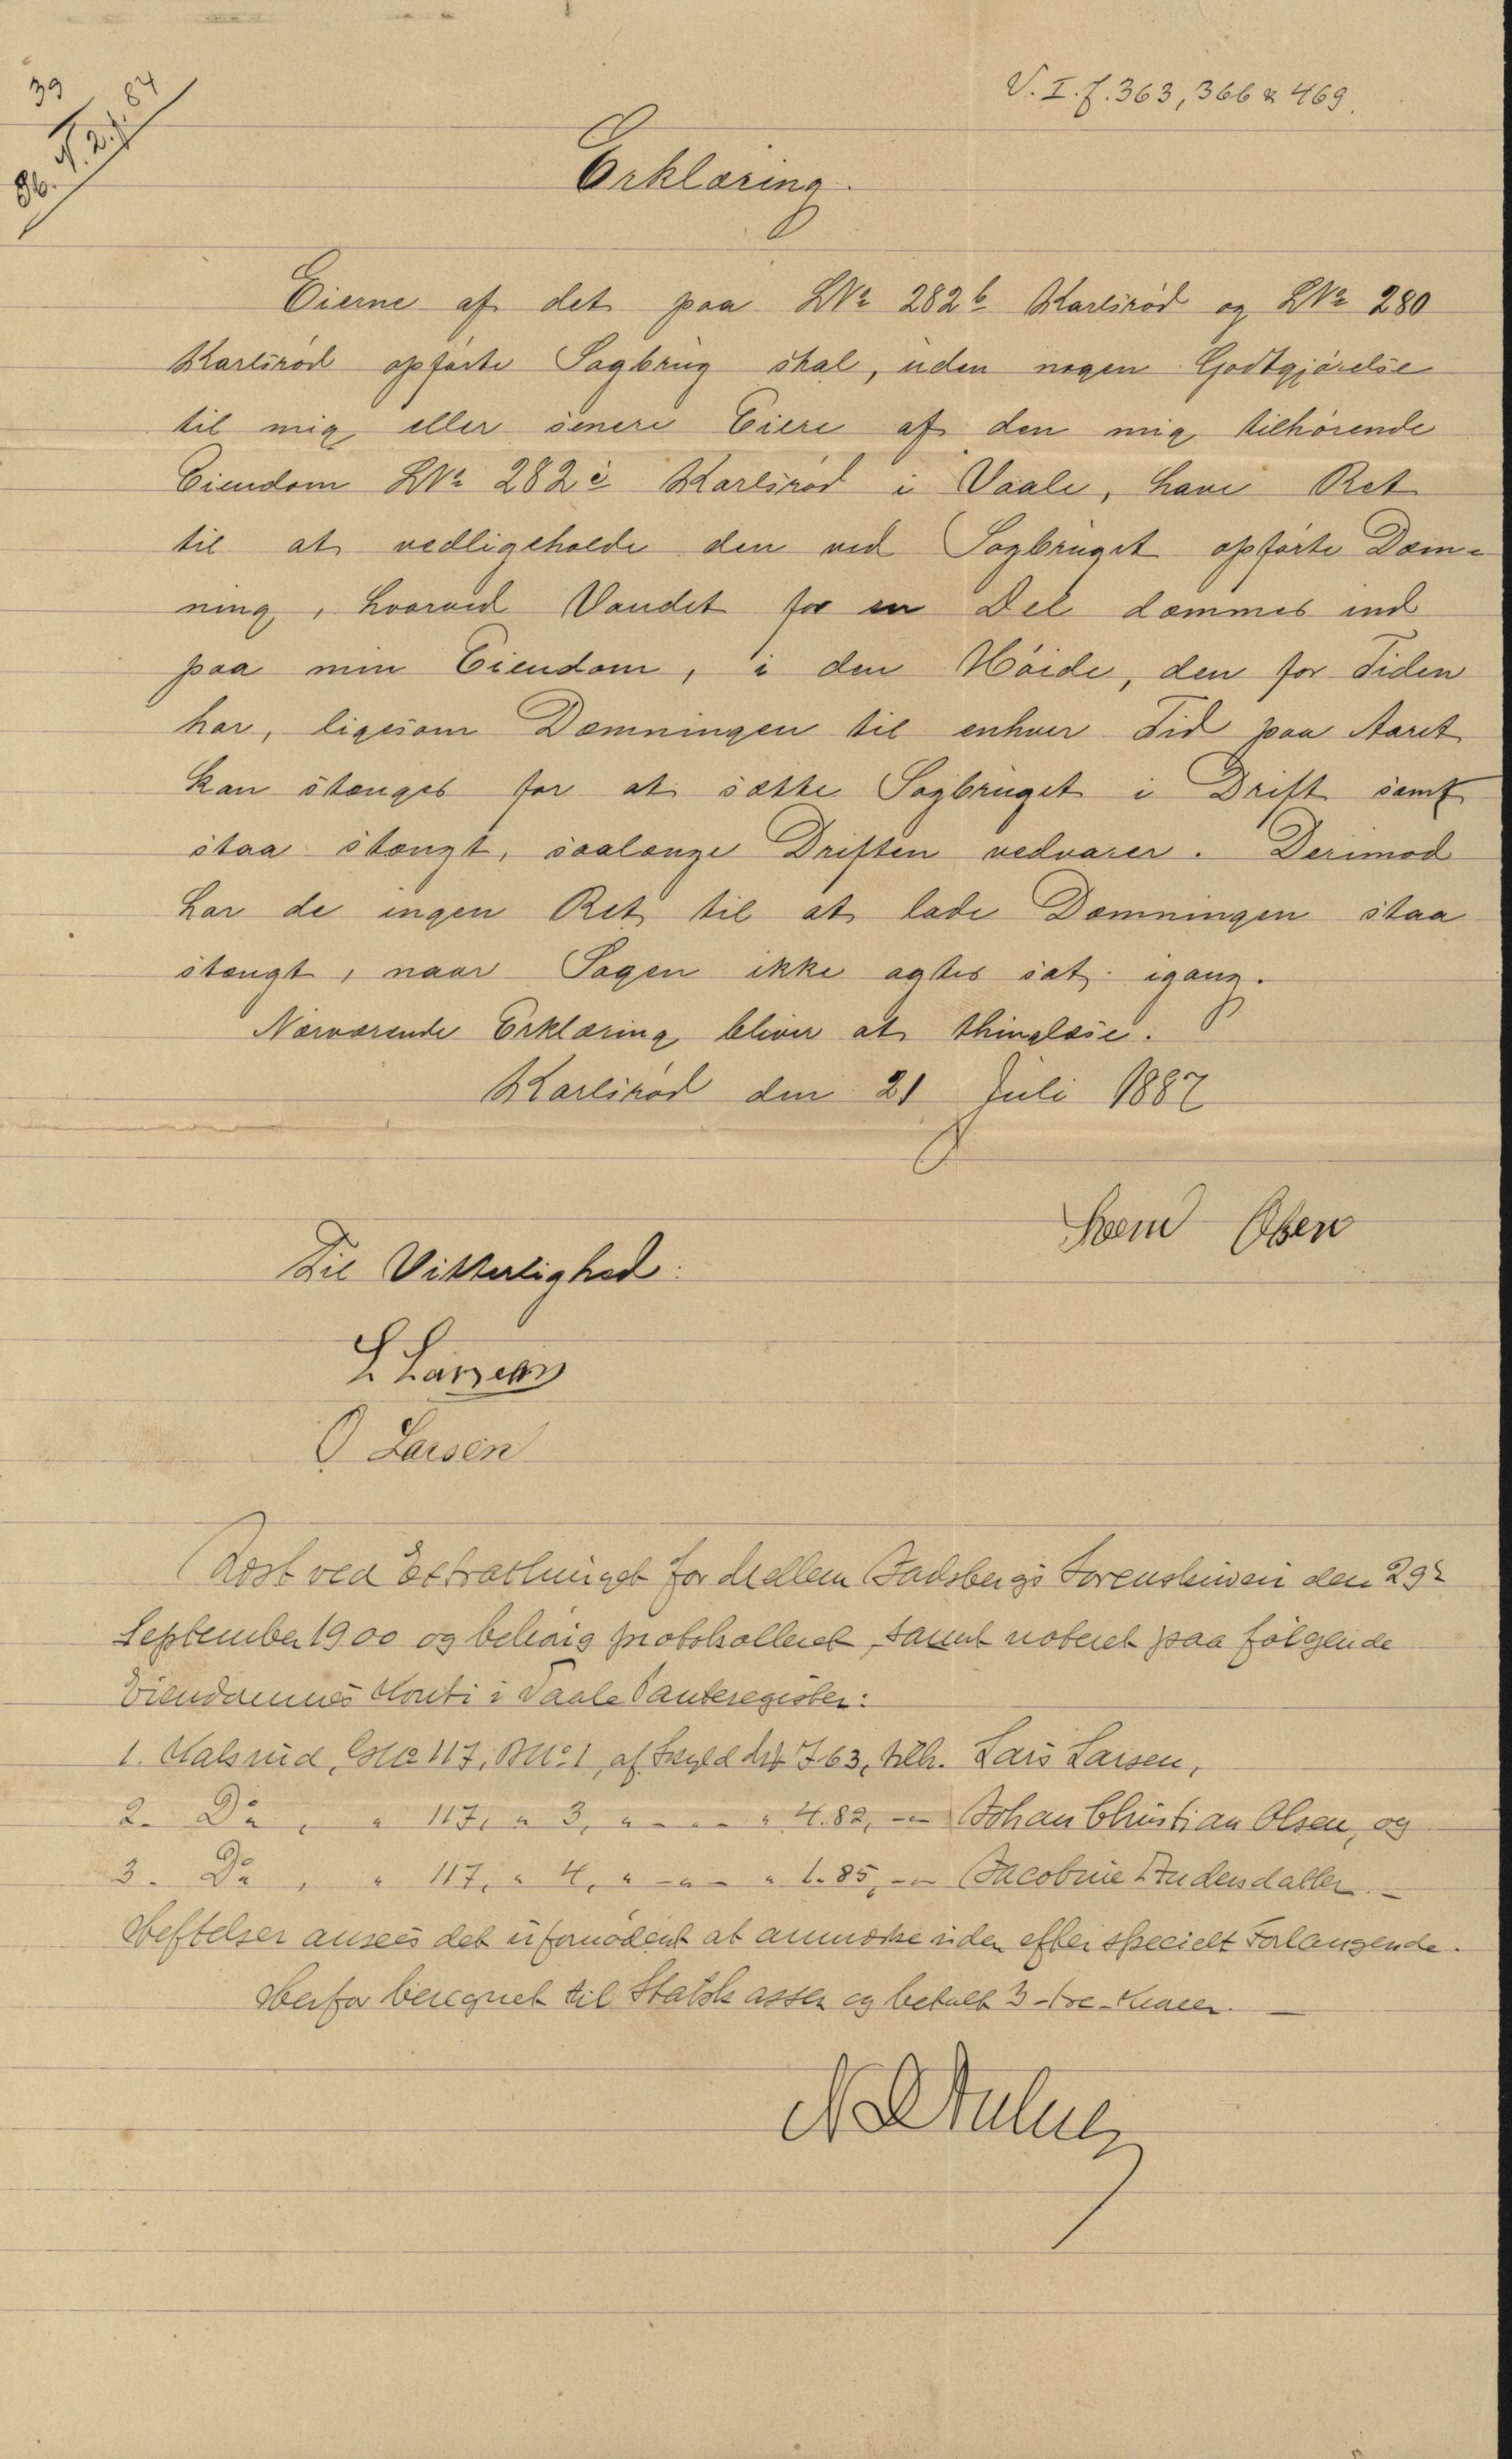 39
Pb. N. 2. f. 84
V. I. f. 363, 366 & 469.
Erklæring.
Eierne af det paa LNo 282b Karlsrød og LNo 280
Karlsrød opførte Sagbrug skal, uden nogen Godtgjørelse
til mig eller senere Eiere af den mig tilhørende
Eiendom LNo 282c Karlsrød i Vaale, have Ret
til at vedligeholde den ved Sagbruget opførte Dæm-
ning, hvorved Vandet for en Del dæmmes ind
paa min Eiendom, i den Høide, den for Tiden
har, ligesom Dæmningen til enhver Tid paa Aaret
kan stænges for at sætte Sagbruget i Drift samt
staa stængt, saalænge Driften vedvarer. Derimod
har de ingen Ret til at lade Dæmningen staa
stængt, naar Sagen ikke agtes sat igang.
Nærværende Erklæring bliver at thinglæse.
Karlsrød den 21 Juli 1887
Svend Olsen
Til Vitterlighed:
L Larsen
O Larsen
Læst ved Extrathinget for Mellem Jarlsbergs Sorenskriveri den 29de
September 1900 og behørig protokolleret, samt noteret paa følgende
Eiendommes Konti i Vaale Panteregister:
1. Kalsrud, GNo 117, BNo 1, af Skyld Mk 7.63, tilh. Lars Larsen,
2. Do, " 117, " 3, " - " - " 4.82, -"- Johan Christian Olsen, og
3. Do, " 117, " 4, " - " - " 1.85, -"- Jacobine Andersdatter. -
Heftelser ansees det ufornødent at anmærke uden efter specielt Forlangende.
Herfor beregnet til Statskassen og betalt 3 - tre - Kroner.